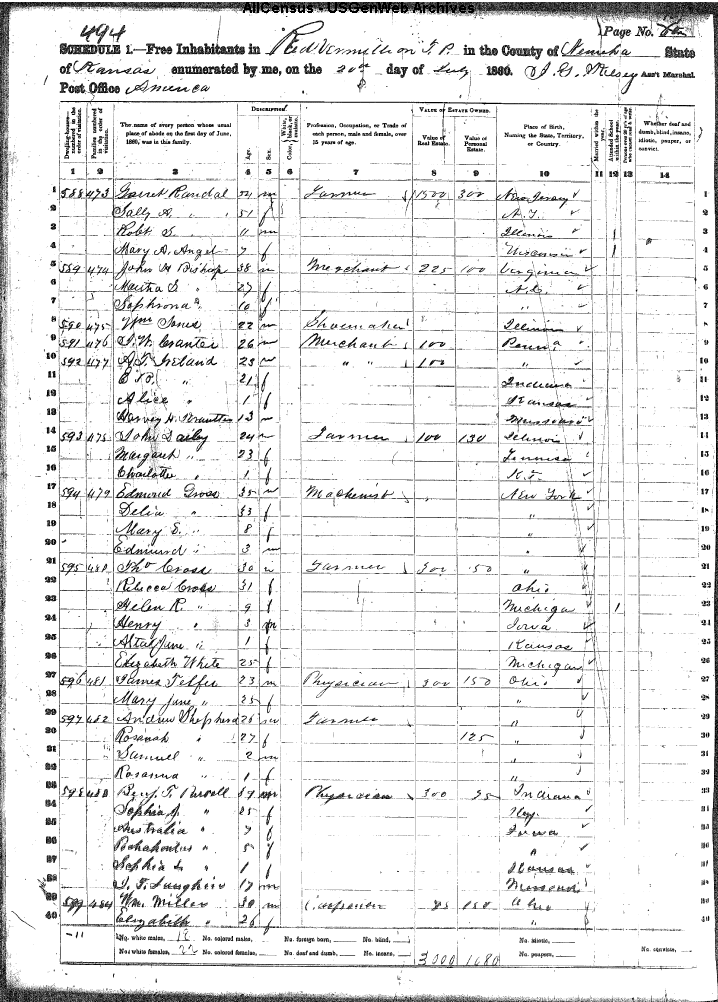 AllCensus - USGenWeb Archives
494
Page No.
SCHEDULE 1.—Free Inhabitants in Red Vermillion T. P. in the County of Nemeha State
of Kansas enumerated by me, on the 20th day of July 1860. Ass't Marshal
Post Office America
DESCRIPTION. VALUE OF ESTATE OWNED.
Dwelling-houses—numbered in the order of visitation. Families numbered in the order of visitation. The name of every person whose usual place of abode on the first day of June, 1860, was in this family. Age. Sex. Color, White, black, or mulatto. Profession, Occupation, or Trade of each person, male and female, over 15 years of age. Value of Real Estate. Value of Personal Estate. Place of Birth, Naming the State, Territory, or Country. Married within the year. Attended School within the year. Persons over 20 y'rs of age who cannot read & write. Whether deaf and dumb, blind, insane, idiotic, pauper, or convict.
1 2 3 4 5 6 7 8 9 10 11 12 13 14
1 588 473 Garret Randal 54 m Farmer 1500 300 New Jersey 1
2 Sally A. " 51 f N. Y. 2
3 Robt S. 11 m Illinois 1 3
4 Mary A. Angel 7 f Wisconsin 1 4
5 589 474 John H Bishop 38 m Merchant 225 100 Virginia 5
6 Martha " 27 f N. C. 6
7 Sophrona " 10 f " 7
8 590 475 Wm Jones 22 m Shoemaker Illinois 8
9 591 476 26 m Merchant 100 Penna 9
10 592 477 A. T. Ireland 23 m " " 100 " 10
11 E. B. " 21 f Indiana 11
12 Alice " 1 f Kansas 12
13 Harvey H. 13 m Missouri 13
14 593 478 John Dailey 24 m Farmer 100 130 Illinois 14
15 Margaret " 23 f 15
16 Charlotte " 1 f K. T. 16
17 594 479 Edmund Gross 35 m Machinist New York 17
18 Delia " 33 f " 18
19 Mary E. " 8 f " 19
20 Edmund " 3 m " 20
21 595 480 Tho Cross 30 m Farmer 300 50 " 21
22 Rebecca Cross 31 f Ohio 22
23 Helen R. " 9 f Michigan 1 23
24 Henry " 3 m Iowa 24
25 " 1 f Kansas 25
26 Elizabeth White 25 f Michigan 26
27 596 481 James Telfer 23 m Physician 300 150 Ohio 27
28 Mary Jane " 25 f " 28
29 597 482 Andrew Shepherd 26 m Farmer " 29
30 Rosanah " 27 f 125 " 30
31 Samuel " 2 m " 31
32 Rosanna " 1 f " 32
33 598 483 Benj. F. 39 m Physician 300 95 Indiana 33
34 Sophia J. " 25 f Ky. 34
35 Australia " 7 f Iowa 35
36 Pochahontas " 5 f " 36
37 Sophia L. " 1 f Kansas 37
38 17 m Missouri 38
39 599 484 Wm. Miller 30 m Carpenter 85 150 Ohio 39
40 Elizabeth " 26 f " 40
No. white males, 18 No. colored males, No. foreign born, No. blind, No. idiotic, No. convicts,
No. white females, 22 No. colored females, No. deaf and dumb, No. insane, 3000 1080 No. paupers,